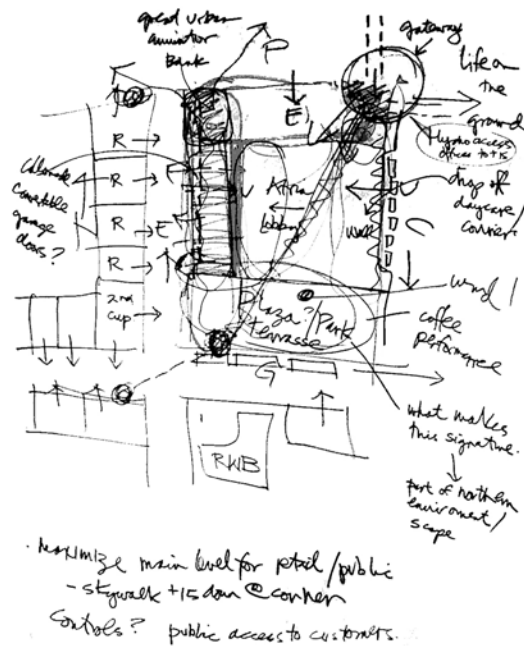 great urban
animator
Bank
P
gateway
life on
the
ground
Hydro access
offices to +15
drop off
daycare/
courier
E
R
R
R
R
2nd
cup
convertible
garage
doors?
E
Atria
lobby
wall
wind!
Plaza?/Park
terrasse
coffee
performance
G
RWB
what makes
this signature.
part of northern
enviroment/
scape
. maximize main level for retail/public
- skywalk +15 down @ corner
Controls? public access to customers.